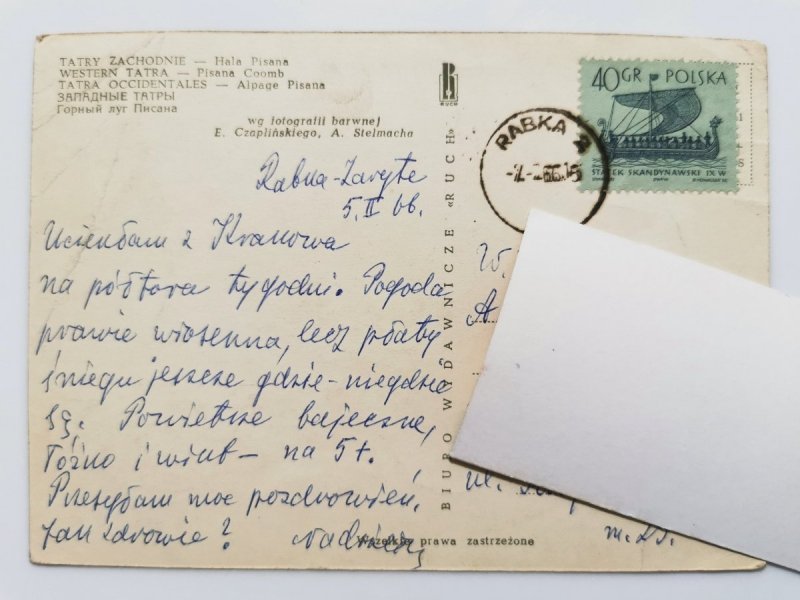 TATRY ZACHODNIE — Hala Pisana
WESTERN TATRA — Pisana Coomb
TATRA OCCIDENTALES — Alpage Pisana
ЗАПАДНЫЕ ТАТРЫ
Горный луг Писана
wg fotografii barwnej
E. Czaplińskiego, A. Stelmacha
RUCH
40 GR POLSKA
STATEK SKANDYNAWSKI IX W
RABKA 2
Rabka-Zaryte
5.II 66.
Uciekłam z Krakowa
na półtora tygodni. Pogoda
prawie wiosenna, lecz płaty
śniegu jeszcze gdzie-niegdzie
są. Powietrze bajeczne,
łóżko i wikt — na 5+.
Przesyłam moc pozdrowień.
Jak zdrowie?
BIURO WYDAWNICZE «RUCH»
W.
A
ul.
Wszelkie prawa zastrzeżone